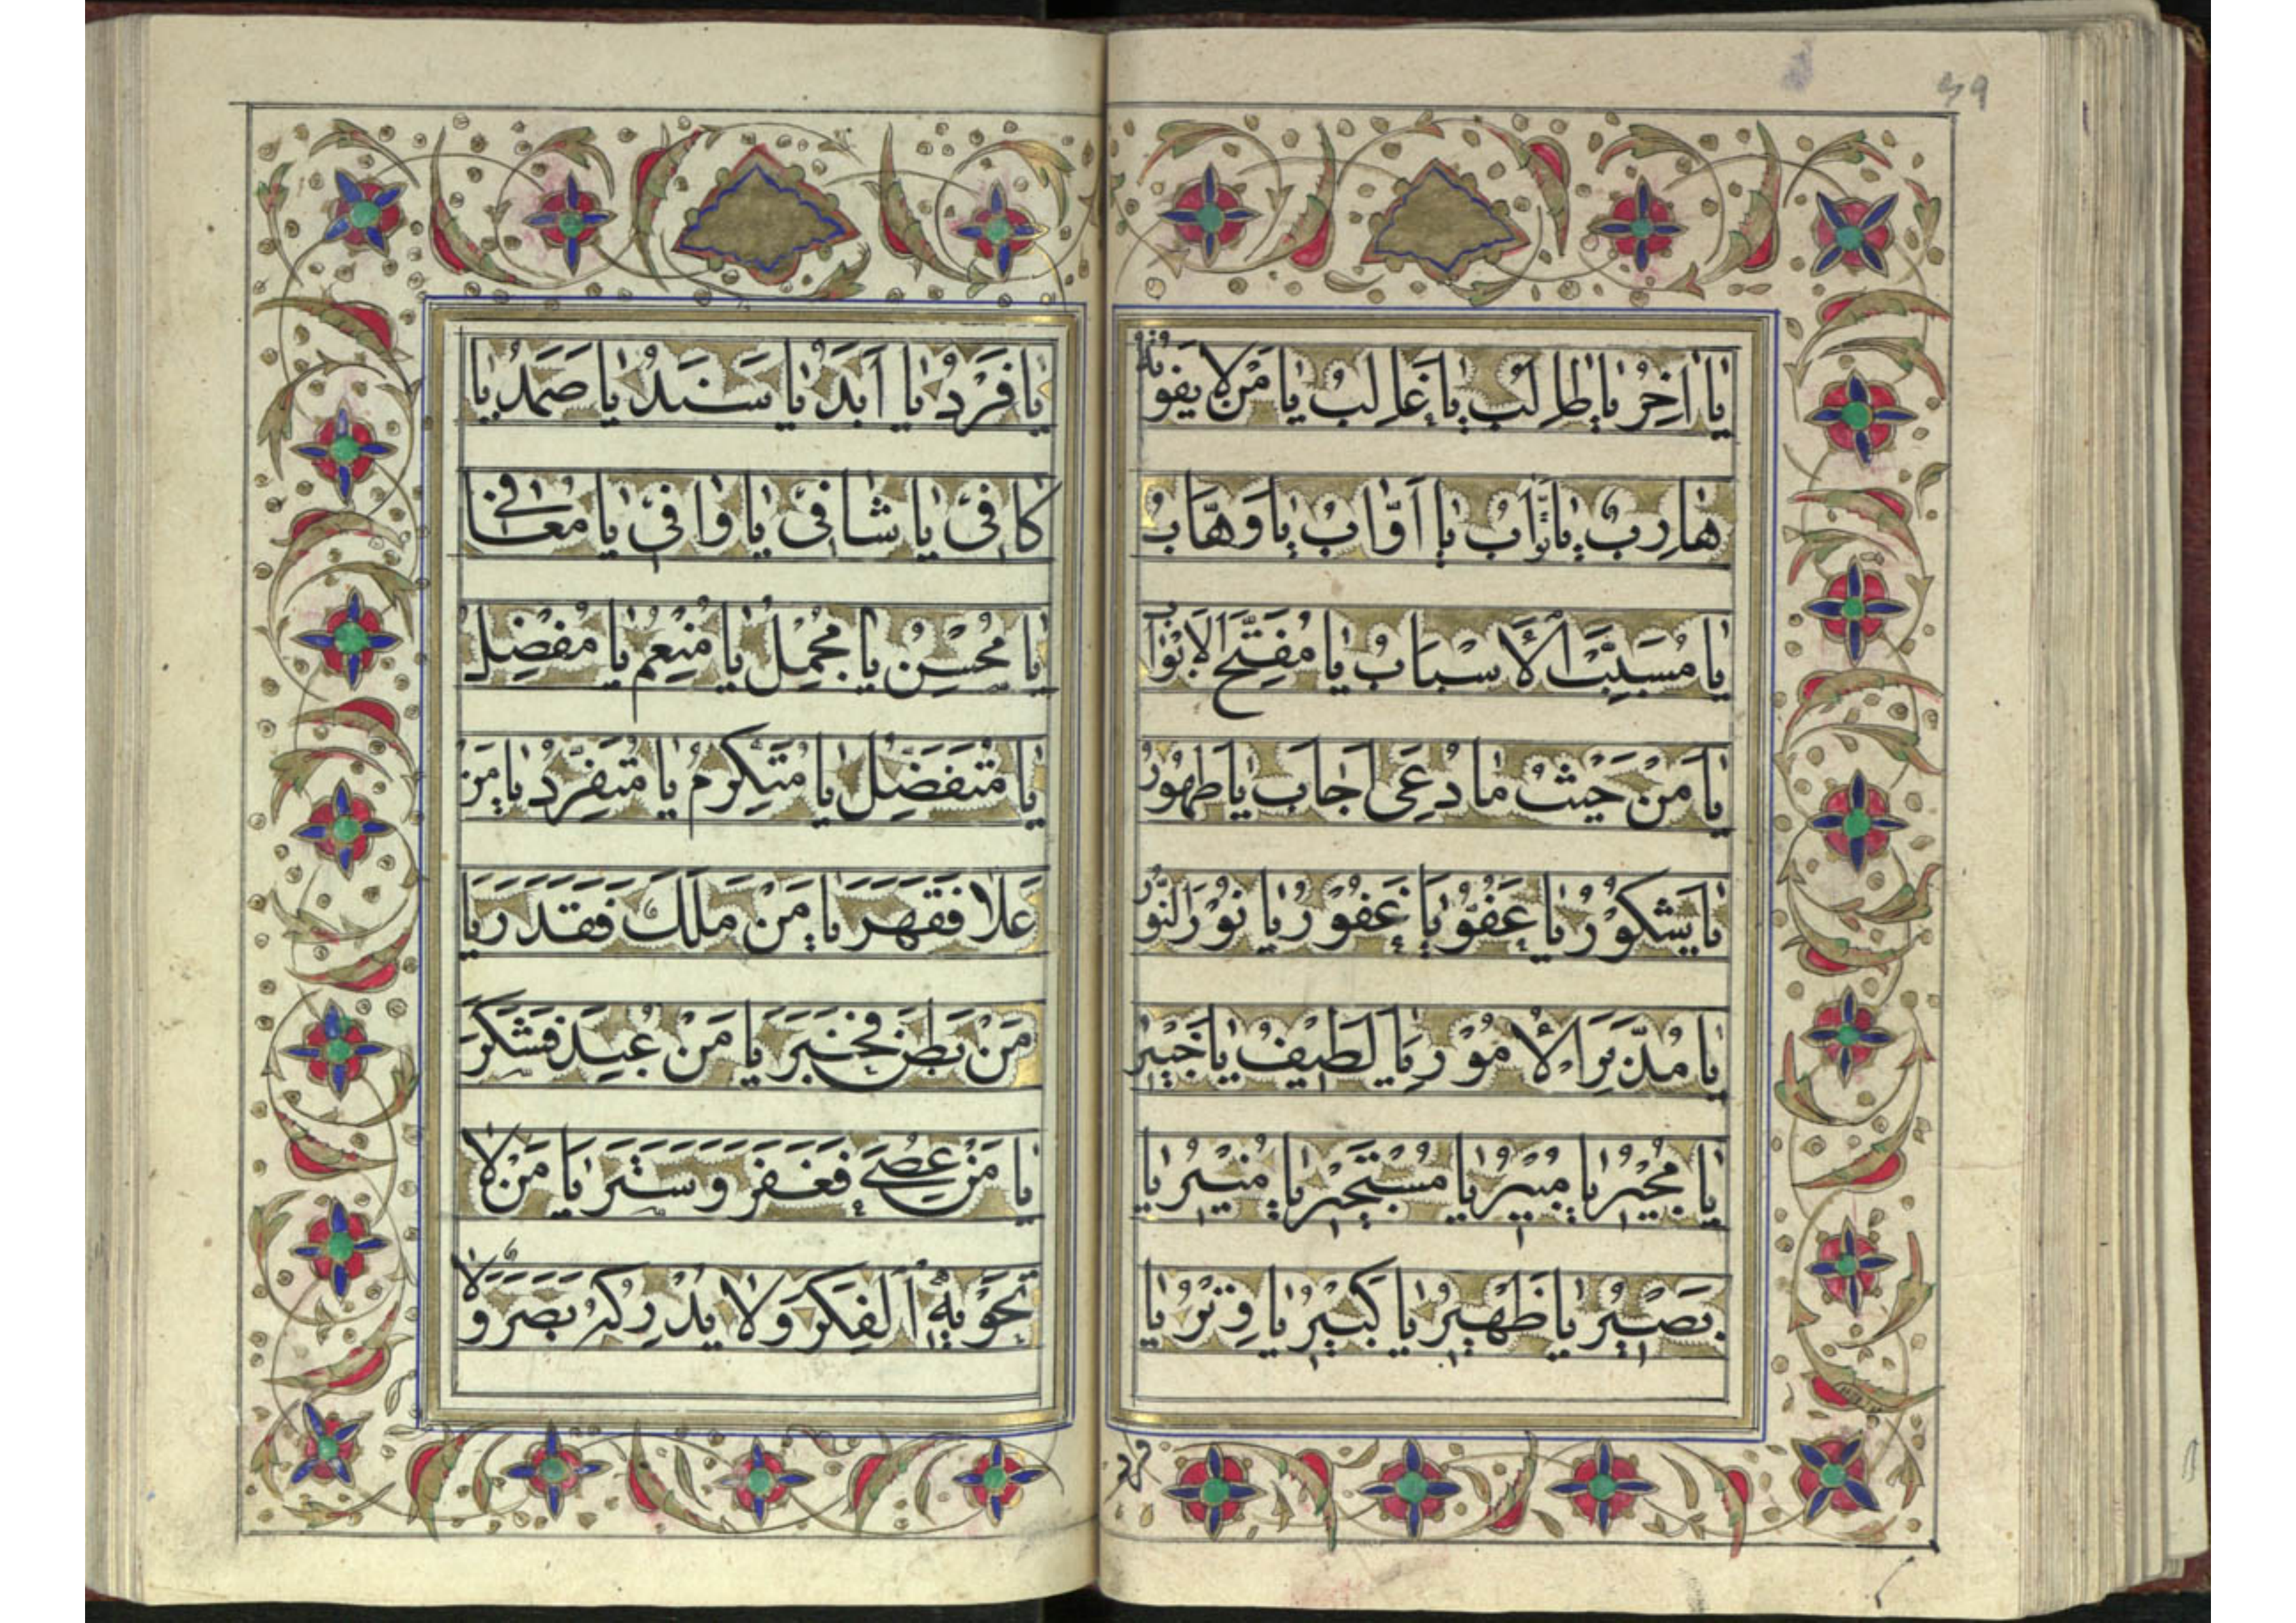 ٤٩
يا اخِرُ يا طالِبُ يا غالِبُ يا مَنْ لا يفوتُهُ
هارِبٌ يا تَوّابُ يا اَوّابُ يا وَهّابُ
يا مُسَبِّبَ الْأَسْبابُ يا مُفَتِّحَ الاَبْوابِ
يا مَنْ حَيْثُ ما دُعِىَ اَجابَ يا طهُورُ
يا شَكُوْرُ يا عَفُوُّ يا غَفُوْرُ يا نُوْرَ النُّوْرِ
يا مُدَبِّرَ الْأُمُوْرِ يا لَطيْفُ يا خَبيْرُ
يا مُجيْرُ يا مُبيْرُ يا مُسْتَجيْرُ يا مُنيْرُ يا
بَصيْرُ يا ظَهيْرُ يا كَبيْرُ يا وِتْرُ يا
فرد
يا فَرْدُ يا اَبَدُ يا سَنَدُ يا صَمَدُ يا
كافى يا شافى يا وافى يا معافى
يا مُحْسِنُ يا مُجْمِلُ يا مُنْعِمُ يا مُفْضِلُ
يا مُتَفَضِّلُ يا مُتَكَرِّمُ يا مُتَفَرِّدُ يا مَنْ
عَلا فَقَهَرَ يا مَنْ مَلَكَ فَقَدَرَ يا
مَنْ بَطَنَ فَخَبَرَ يا مَنْ عُبِدَ فَشَكَرَ
يا مَنْ عُصِىَ فَغَفَرَ وَ سَتَرَ يا مَنْ لا
تَحْوِيهِ الْفِكَرُ وَلا يُدْرِكُهُ بَصَرٌ وَلا